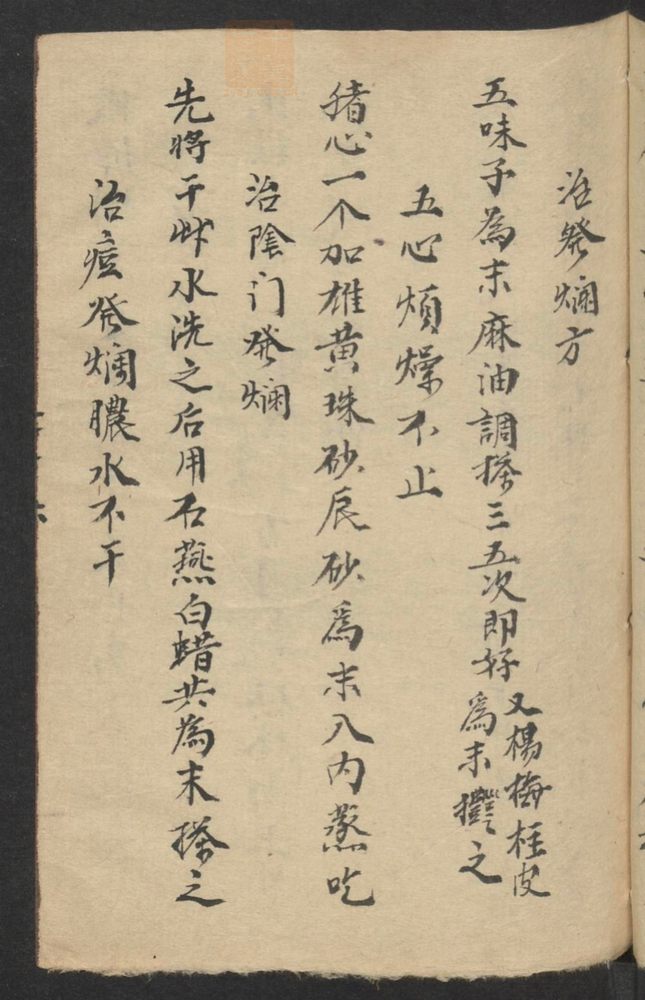 治発爛方
五味子為末麻油調搽三五次即好又楊梅桂皮
為末攤之
五心煩燥不止
猪心一个加雄黄珠砂辰砂為末入内蒸吃
治陰门発爛
先將干艸水洗之后用石燕白蜡共為末搽之
治痘発爛膿水不干